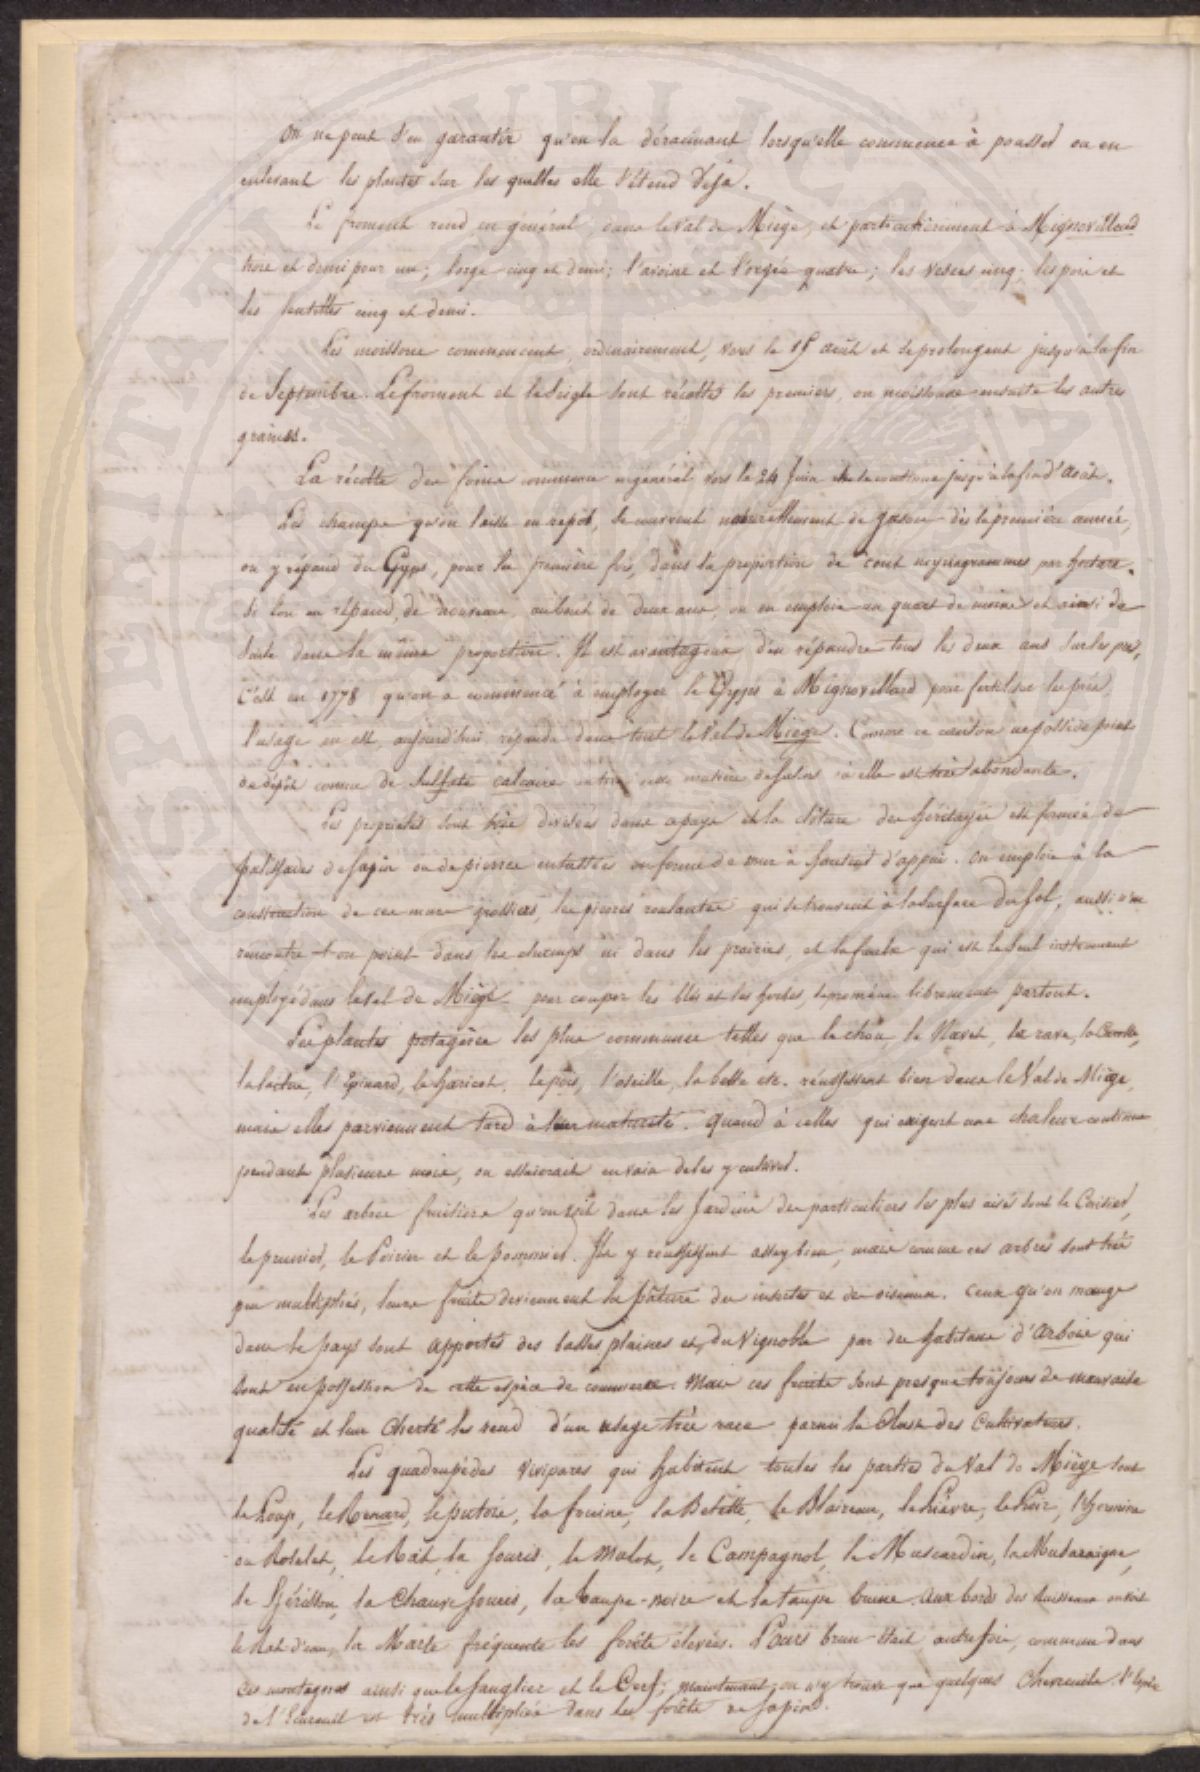 On ne peut s'en garantir qu'en la déracinant lorsqu'elle commence à pousser ou en
enlevant les plantes sur les quelles elle s'étend déjà.
Le froment rend en général, dans le val de Miège, et particulièrement à Mignovillard
trois et demi pour un; l'orge cinq et demi; l'avoine et l'orgée quatre; les vesces cinq; les pois et
les lentilles cinq et demi.
Les moissons commencent, ordinairement, vers le 15 août et se prolongent jusqu'à la fin
de Septembre. Le froment et le Seigle sont récoltés les premiers, on moissonne ensuite les autres
graines.
La récolte des foins commence en général vers le 24 Juin et se continue jusqu'à la fin d'Août.
Les champs qu'on laisse en repos, se couvrent naturellement de gazon dès la première année,
on y répand du Gyps, pour la première fois, dans la proportion de cent myriagrammes par hectare.
Si l'on en répand, de nouveau, au bout de deux ans, on en emploie un quart de moins et ainsi de
suite dans la même proportion. Il est avantageux d'en répandre tous les deux ans sur les prés,
C'est en 1778 qu'on a commencé à employer le Gyps à Mignovillard pour fertiliser les prés,
l'usage en est, aujourd'hui répandu dans tout le Val de Miège. Comme ce canton ne possède point
de dépôt connu de Sulfate calcaire on tire cette matière de Salins où elle est très abondante.
Les propriétés sont très divisées dans ce pays et la clôture des héritages est formée de
palissades de sapin ou de pierres entassées en forme de mur à hauteur d'appui. On emploie à la
construction de ces murs grossiers, les pierres roulantes qui se trouvent à la surface du sol, aussi n'en
rencontre-t-on point dans les champs ni dans les prairies, et la faulx qui est le seul instrument
employé dans le val de Miège pour couper les blés et les herbes, se promène librement partout.
Les plantes potagères les plus communes telles que le chou, le Navet, la rave, la Carotte,
la laitue, l'Epinard, le haricot, le pois, l'oseille, la bette etc. réussissent bien dans le Val de Miège,
mais elles parviennent tard à leur maturité. Quand à celles qui exigent une chaleur continue
pendant plusieurs mois, on essaierait en vain de les y cultiver.
Les arbres fruitiers qu'on voit dans les Jardins des particuliers les plus aisés sont le Cerisier,
le prunier, le Poirier et le pommier. Ils y réussissent assez bien, mais comme ces arbres sont très
peu multipliés, leurs fruits deviennent la pâture des insectes et des oiseaux. Ceux qu'on mange
dans le pays sont apportés des basses plaines et du Vignoble par des habitans d'Arbois qui
sont en possession de cette espèce de commerce. Mais ces fruits sont presque toujours de mauvaise
qualité et leur cherté les rend d'un usage très rare parmi la Classe des Cultivateurs.
Les quadrupèdes vivipares qui habitent toutes les parties du Val de Miège sont
le Loup, le Renard, le putois, la fouine, la Belette, le Blaireau, le Lièvre, le Loir, l'hermine
ou Roselet, le Rat, la souris, le Mulot, le Campagnol, le Muscardin, la Musaraigne,
le Hérisson, la Chauve souris, la taupe-noire et la taupe brune. Aux bords des Ruisseaux on voit
le Rat-d'eau, la Marte fréquente les forêts élevées. L'Ours brun était, autrefois, commun dans
ces montagnes ainsi que le Sanglier et le Cerf; maintenant, on n'y trouve que quelques Chevreuils. l'Espèce
de l'Ecureuil est très multipliée dans les forêts de sapins.